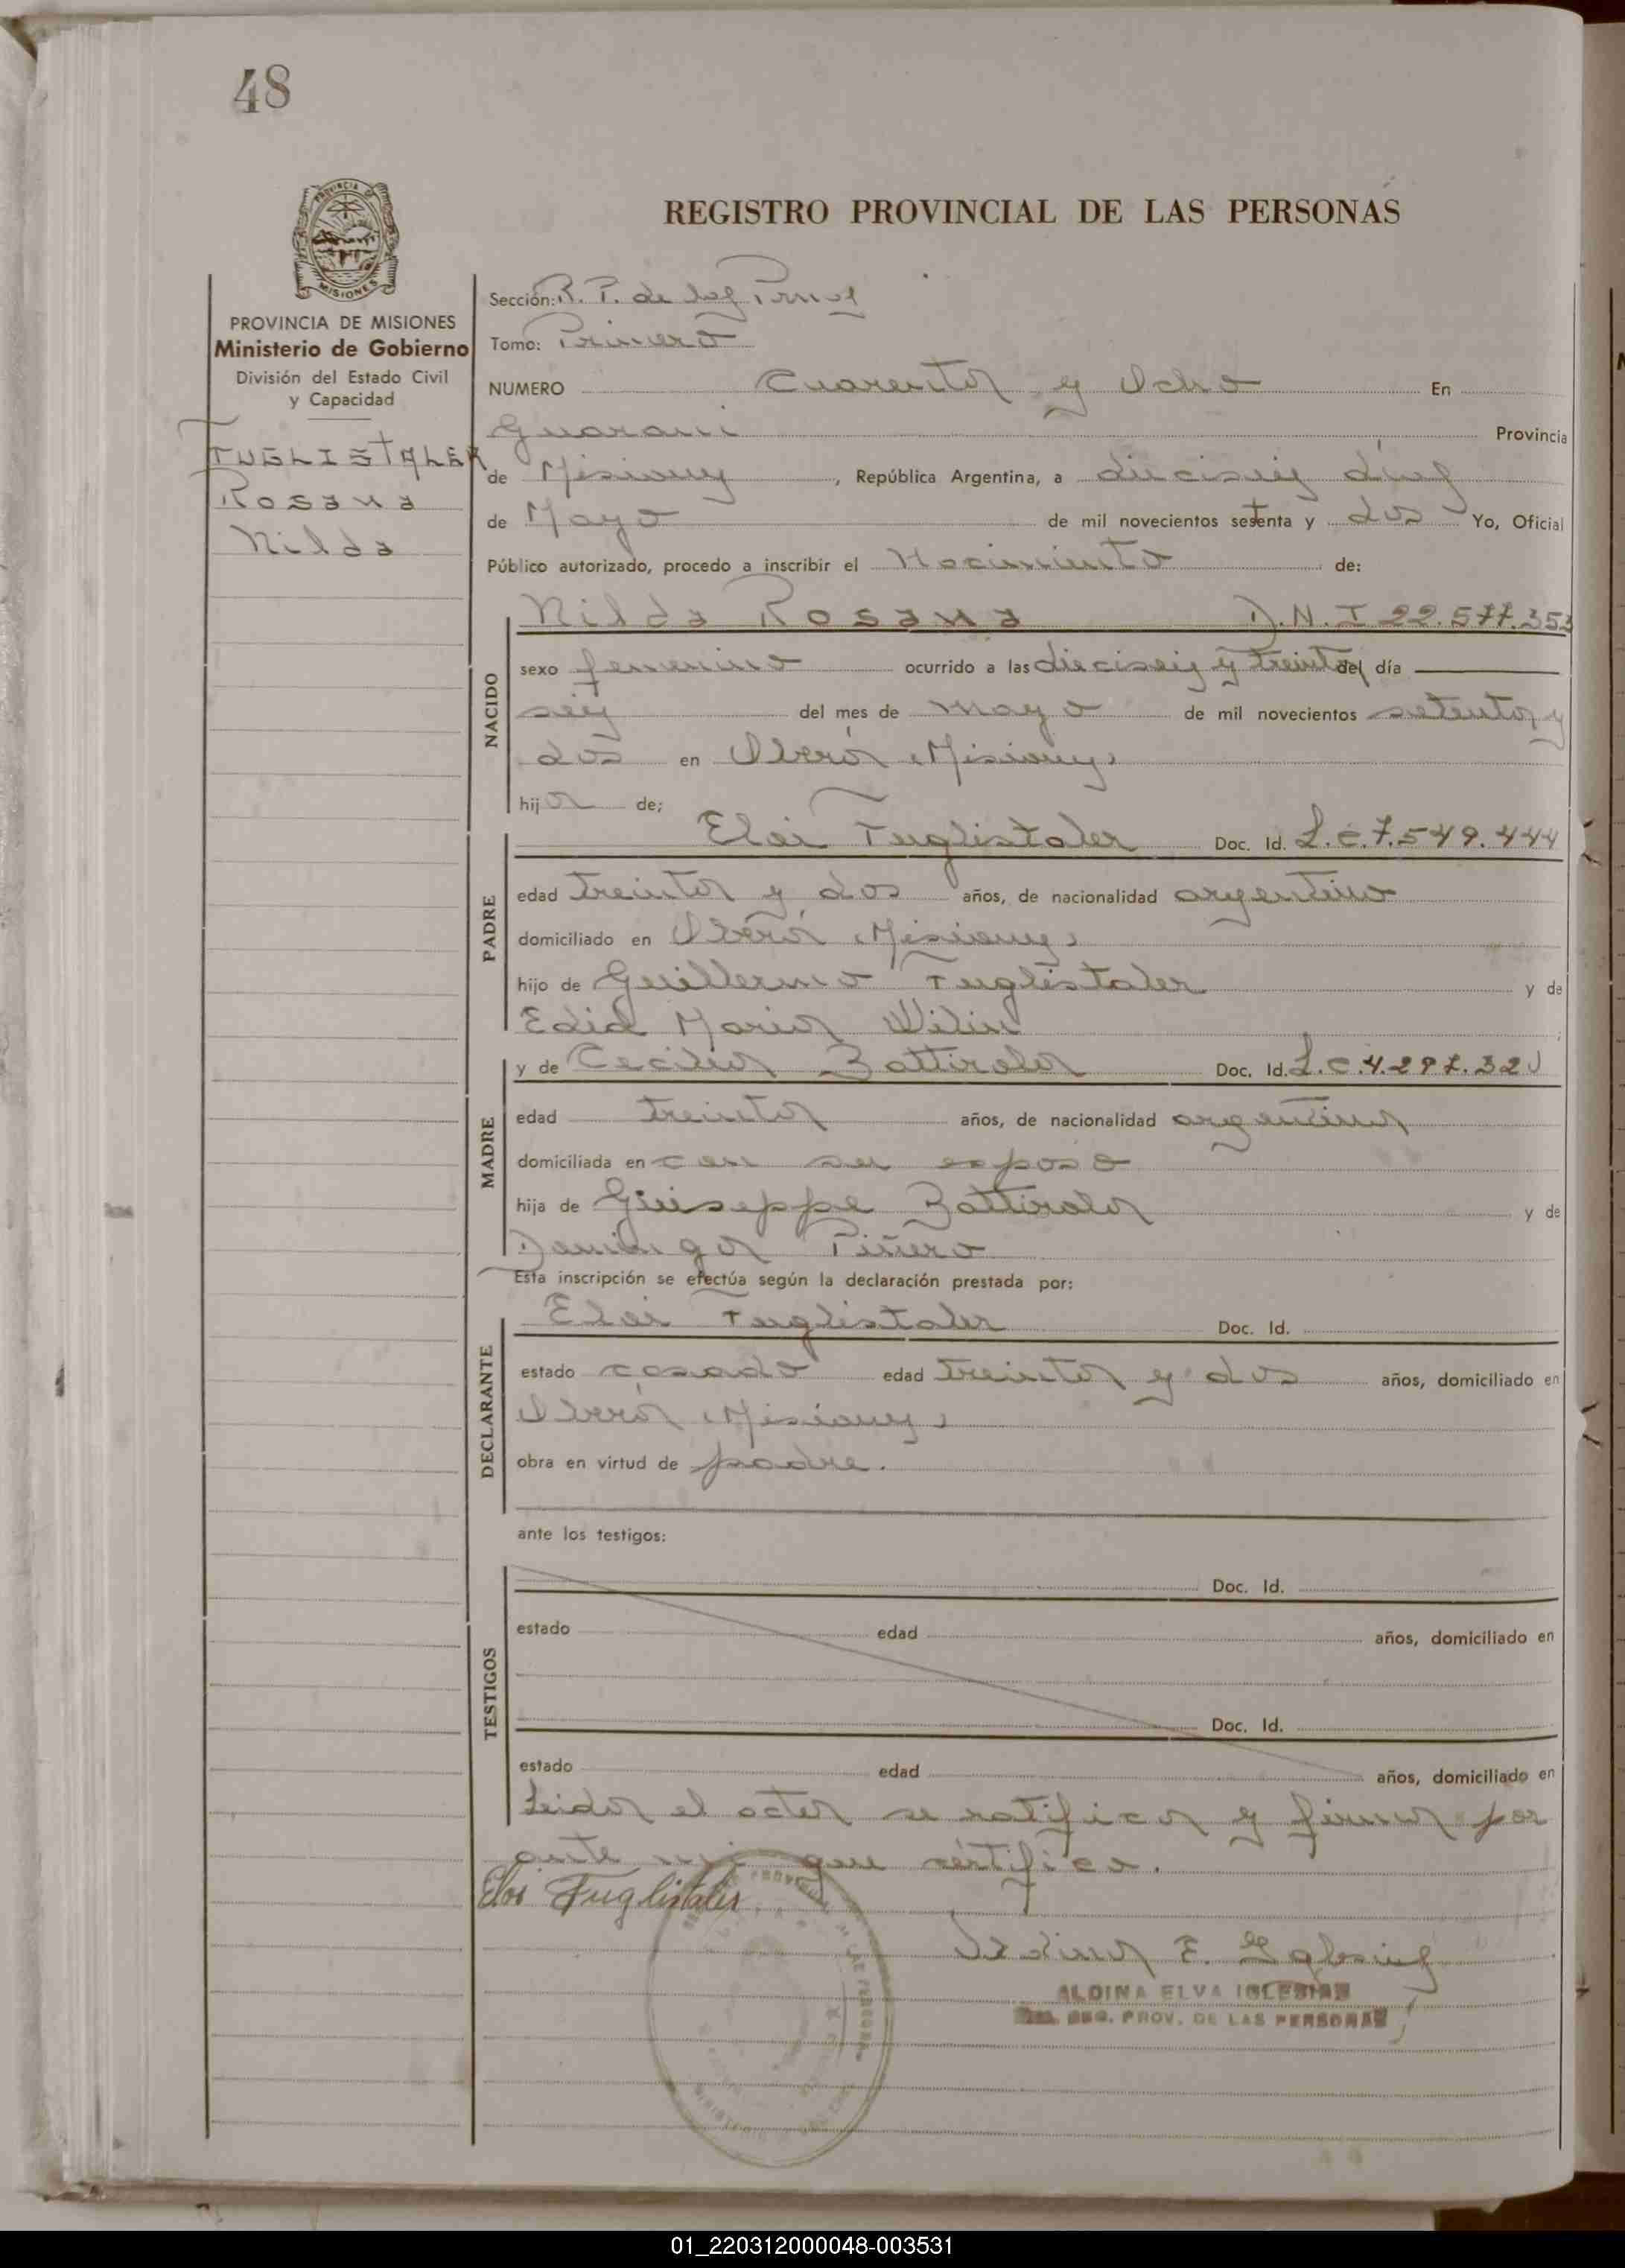 48
REGISTRO PROVINCIAL DE LAS PERSONAS
PROVINCIA DE MISIONES
Ministerio de Gobierno
División del Estado Civil
y Capacidad
FUGLISTALER
Rosana
Nilda
Sección: R. P. de las
Tomo: Primero
NUMERO cuarenta y Ocho En
Guarani Provincia
de Misiones, República Argentina, a dieciseis días
de Mayo de mil novecientos setenta y dos Yo, Oficial
Público autorizado, procedo a inscribir el Nacimiento de:
NACIDO
Nilda Rosana D.N.I 22.577.353
sexo femenino ocurrido a las dieciseis y treinta del día
seis del mes de mayo de mil novecientos setenta y
dos en Oberá, Misiones,
hija de;
PADRE
Eloi Fuglistaler Doc. Id. L.E.7.549.444
edad treinta y dos años, de nacionalidad argentino
domiciliado en Oberá, Misiones,
hijo de Guillermo Fuglistaler y de
Edia Maria
MADRE
y de Cecilia Battirola Doc. Id. L.C.4.297.320
edad treinta años, de nacionalidad argentina
domiciliada en con su esposo
hija de Giuseppe Battirola y de
Dominga Piñero
Esta inscripción se efectúa según la declaración prestada por:
DECLARANTE
Eloi Fuglistaler Doc. Id.
estado casado edad treinta y dos años, domiciliado en
Oberá, Misiones,
obra en virtud de padre.
ante los testigos:
TESTIGOS
Doc. Id.
estado edad años, domiciliado en
Doc. Id.
estado edad años, domiciliado en
Leida el acta se ratifica y firma por
ante mi que certifico.
Eloi Fuglistaler
Aldina E. de Iglesias
ALDINA ELVA IGLESIAS
REG. PROV. DE LAS PERSONAS
01_220312000048-003531